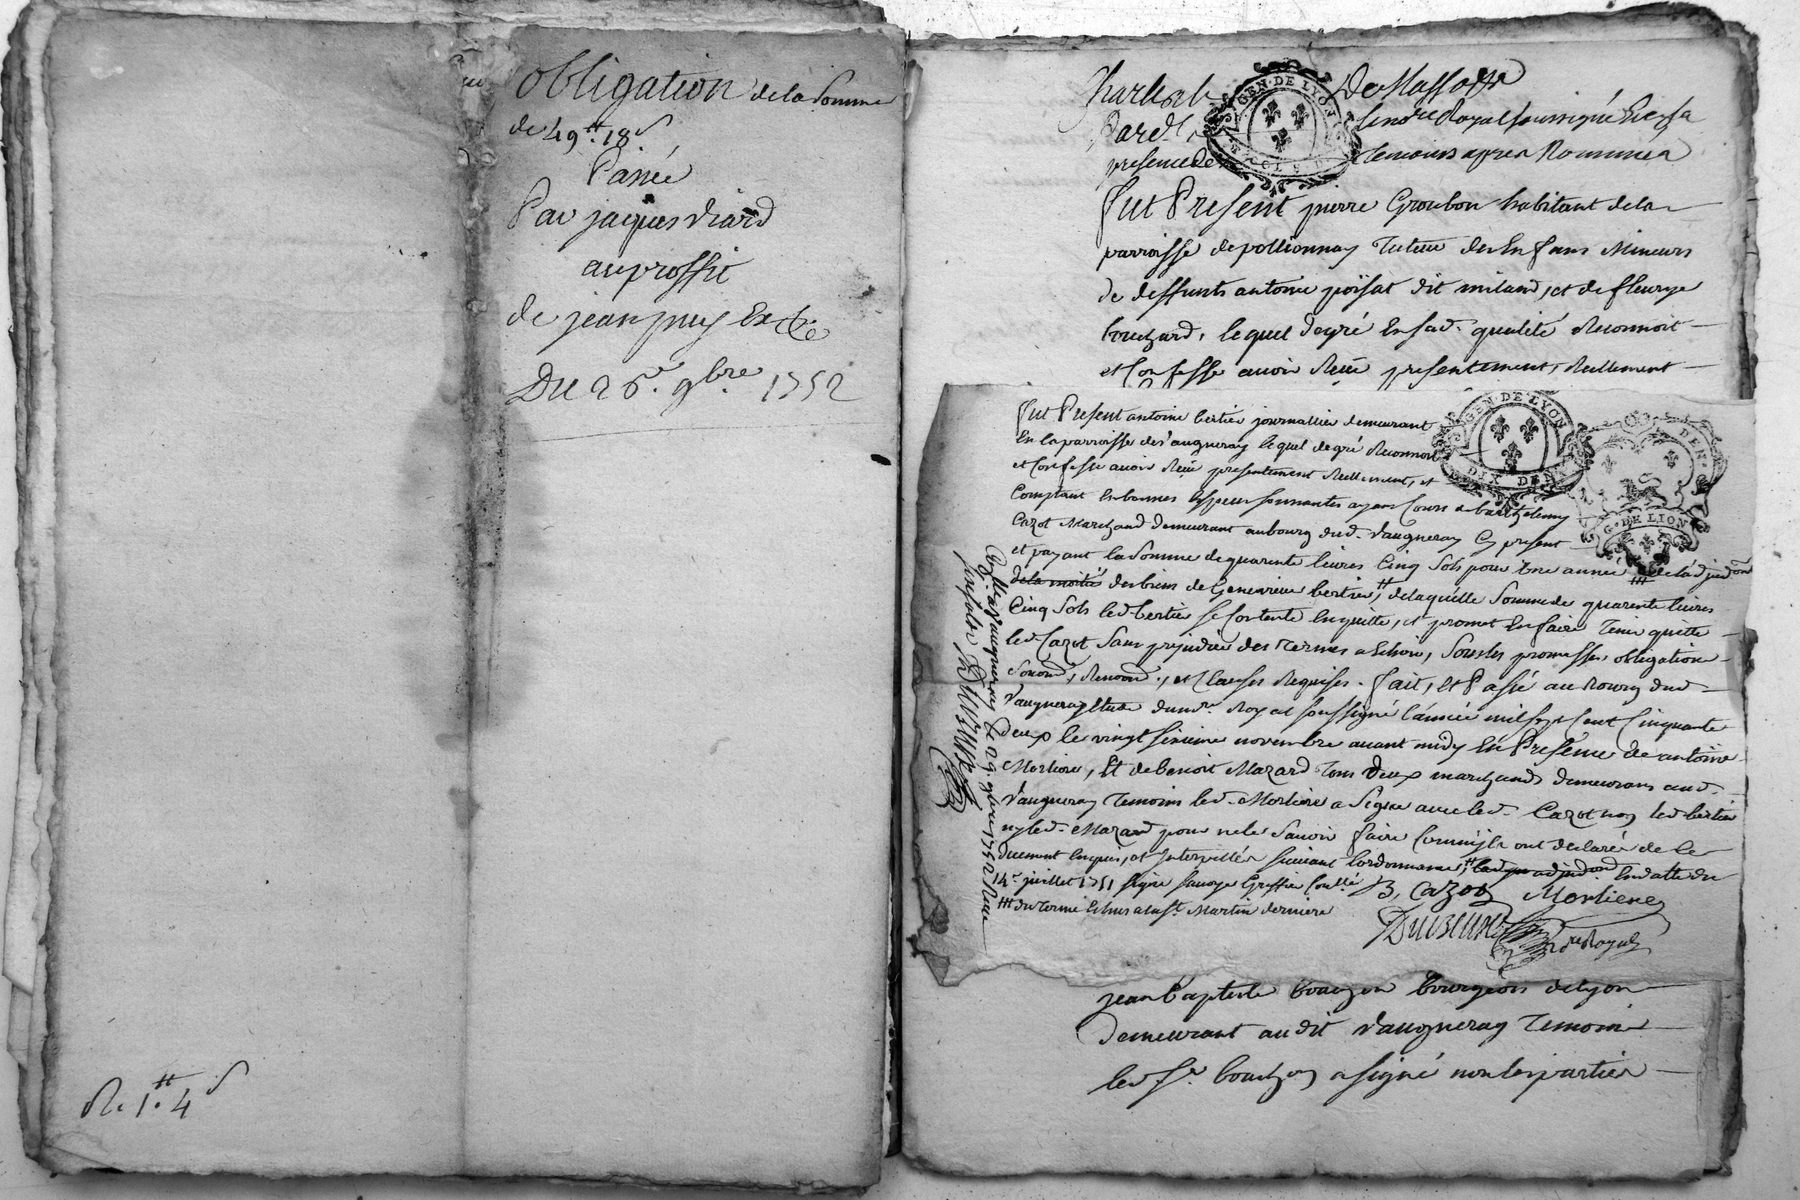 Obligation de la Somme
de 49.tt 18.s
Passée
Par jaques Viard
au proffit
de jean puy
Du 26.e 9bre. 1752
R. 1.tt 4 s
GEN. DE LYON
royal soussigné
presence de temoins apres Nommés
Fut Present pierre Groubon habitant de la
parroisse de pollionnay Tuteur des Enfans Mineurs
de deffunts antoine poisat dit milan, et de fleurye
bouchard, lequel degré En sad. qualité Reconnoit
et Confesse avoir Reçu presentement, Reellement
GEN. DE LYON
DIX DE
G. DE LION
Fut Present antoine bertier journallier demeurant
En la parroisse de Vaugneray lequel degré Reconnoit
et Confesse avoir Reçu presentement Reellement, et
Comptant En bonnes Especes sonnantes ayans Cours de barthelemy
Cazot Marchand demeurant au bourg dud. Vaugneray Cy present
et payant la Somme de quarante livres Cinq Sols pour une année de la
de la moitié des biens de Genevieve bertier, de laquelle Somme de quarante livres
Cinq Sols led. bertier se Contente En quitte, et promet En faire Tenir quitte
led. Cazot Sans prejudice des Termes a Echoir, Sous les promesses, obligations
Renond., et Clauses Requises. fait, Et Passé au bourg dud.
Vaugneray Etude du nore. Royal soussigné l'année mil sept Cent Cinquante
deux le vingt sixieme novembre avant midy En Presence de antoine
Morliere, Et de benoit Mazard Tous deux marchands demeurans aud.
Vaugneray Temoins led. Morliere a Signé avec led. Cazot non led. bertier
ny led. Mazard pour ne le Savoir faire Comm'ils ont declaré de Ce
duement Enquis, et Interpellés suivant l'ordonnance, En datte du
14.e juillet 1751 signé Greffier B, Cazot Morliere
du terme Echus a la St. Martin derniere
nre Royal
a Vaugneray le 29. 9bre 1752 Reçu
jean baptiste bourgeois de Lyon
Demeurant au dit Vaugneray Temoins
led. Sr. a signé non les parties